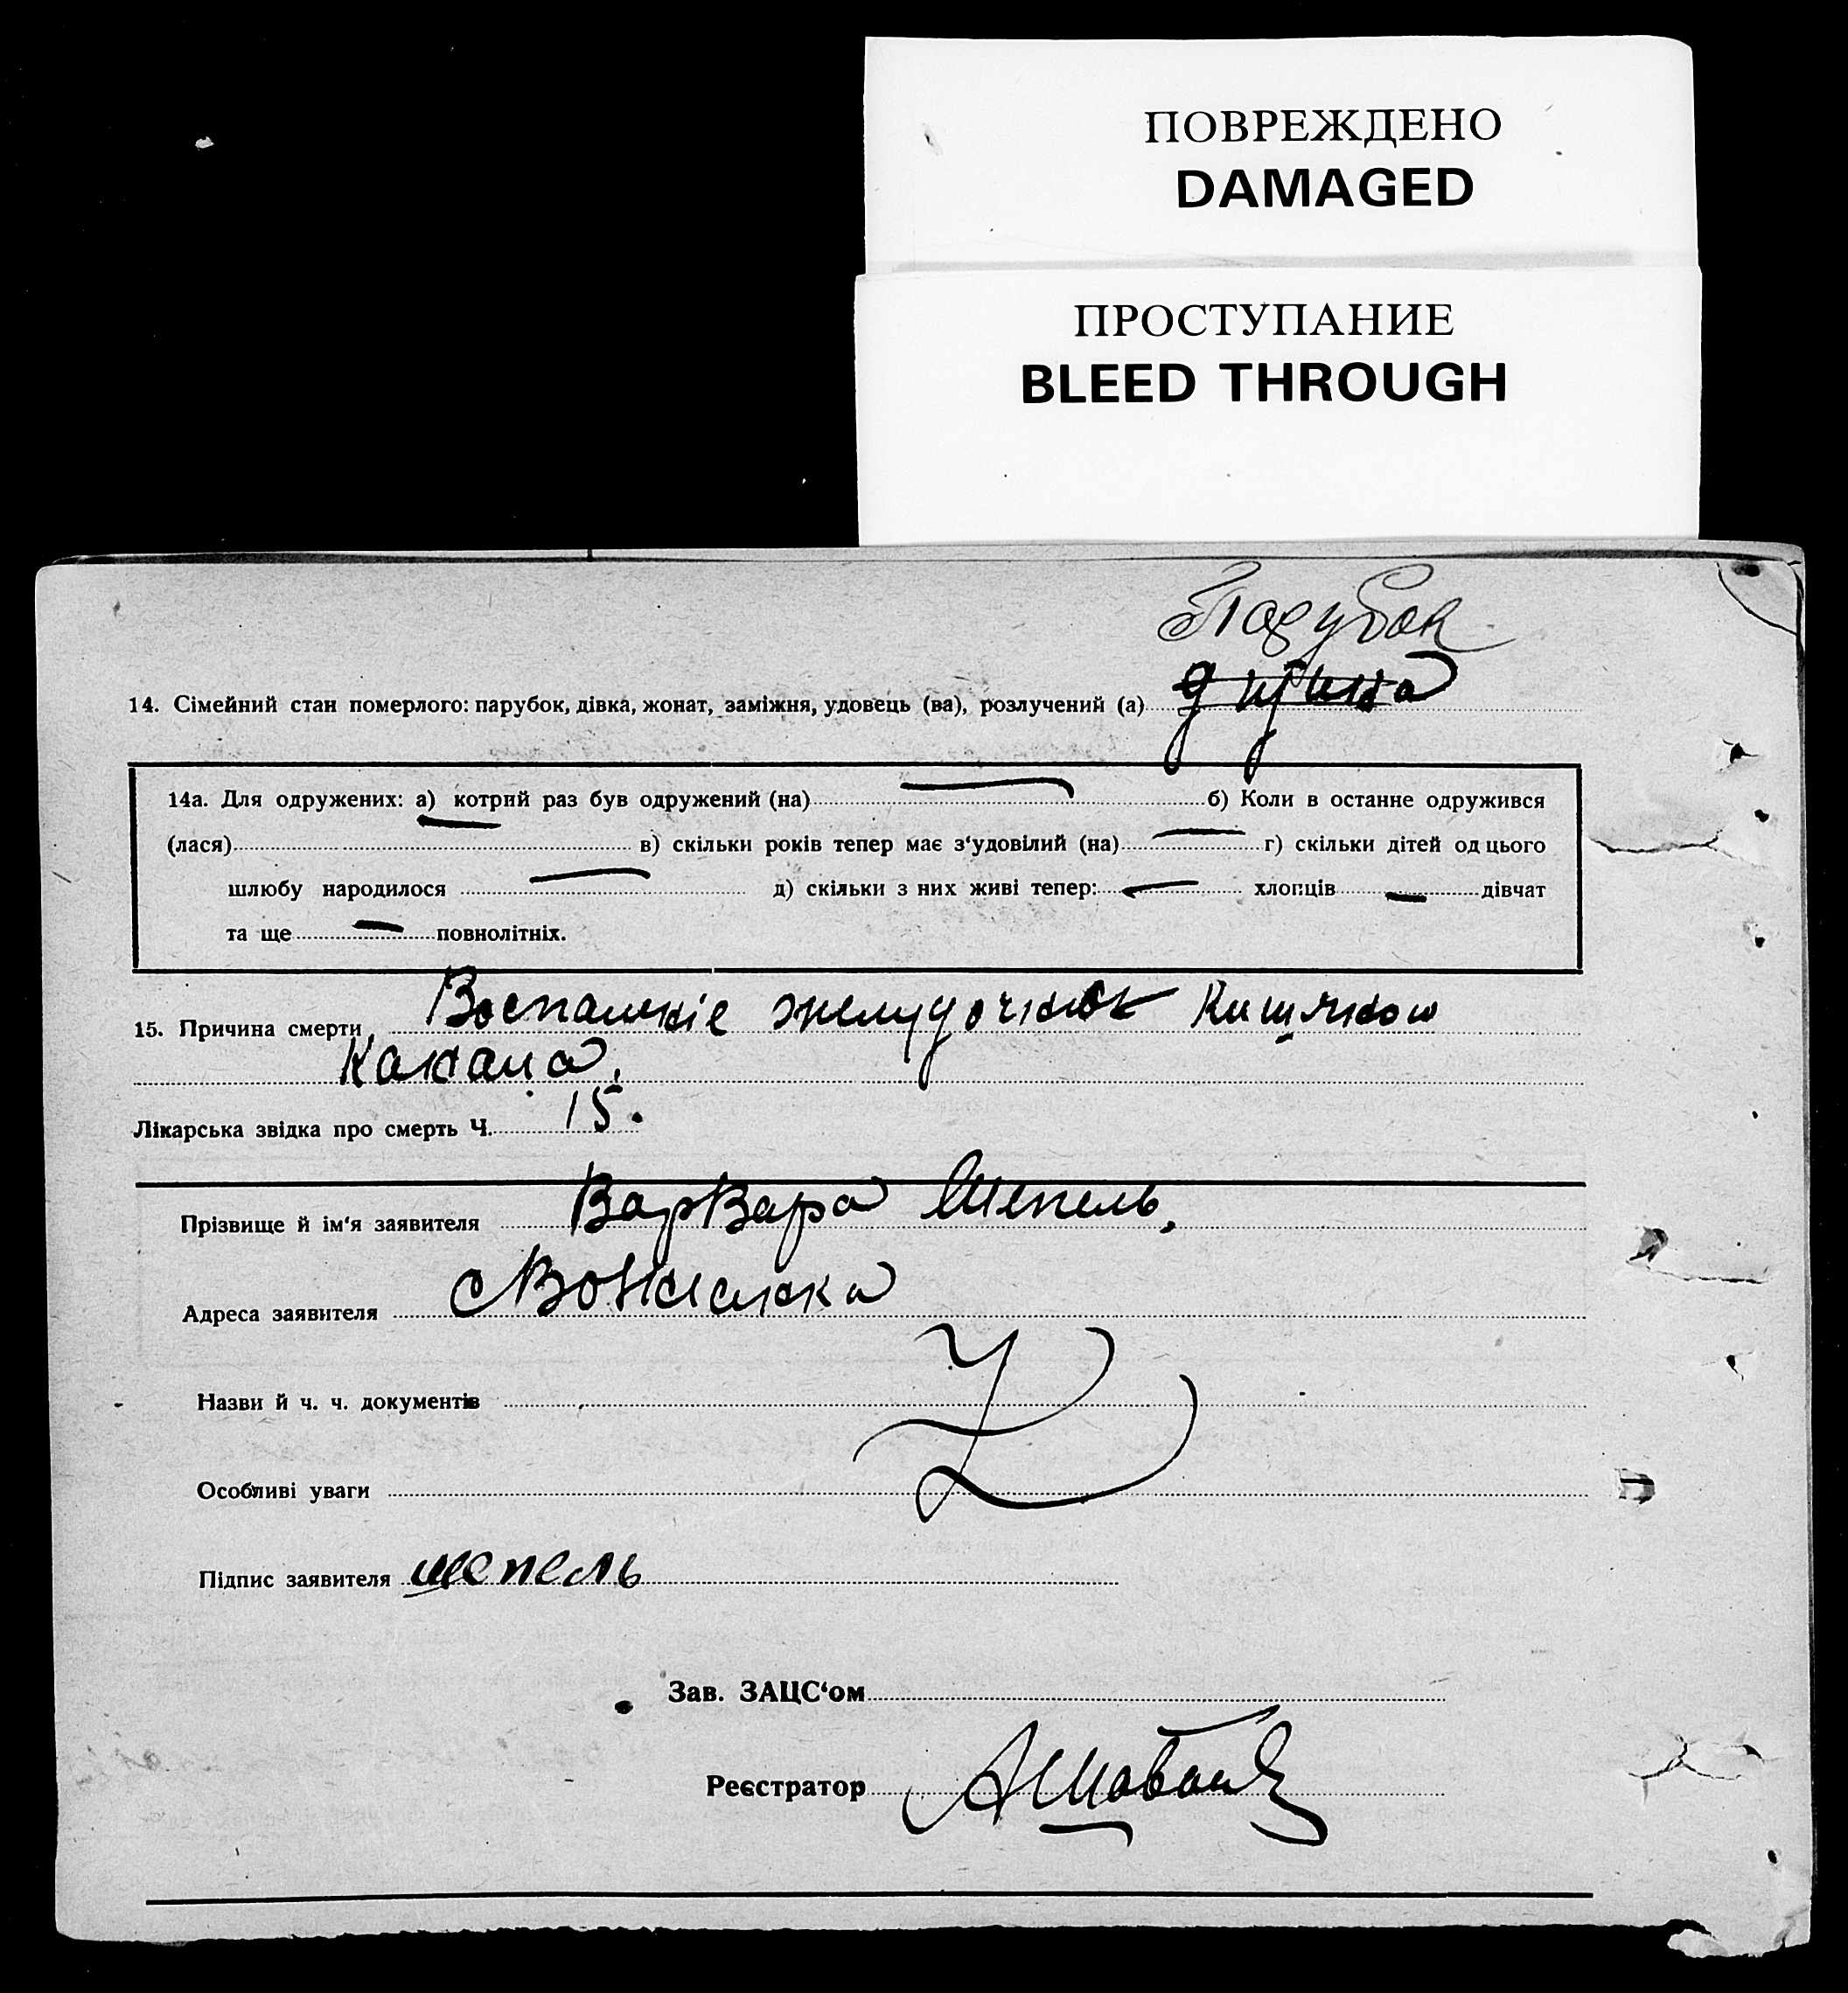 ПОВРЕЖДЕНО
DAMAGED
ПРОСТУПАНИЕ
BLEED THROUGH
Парубок
14. Сімейний стан померлого: парубок, дівка, жонат, заміжня, удовець (ва), розлучений (а)
14а. Для одружених: а) котрий раз був одружений (на) б) Коли в останне одружився
(лася) в) скільки років тепер має з'удовілий (на) г) скільки дітей од цього
шлюбу народилося д) скільки з них живі тепер: хлопців дівчат
та ще повнолітніх.
15. Причина смерти Воспаление желудочно Кишечного
Канала.
Лікарська звідка про смерть Ч. 15.
Прізвище й ім'я заявителя Варвара Шепель.
Адреса заявителя
Назви й ч. ч. документів
Особливі уваги
Підпис заявителя шепель
Зав. ЗАЦС'ом
Реєстратор